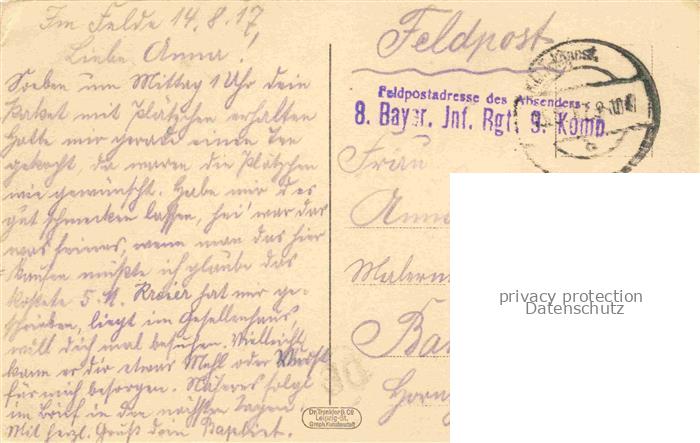 Im Felde 14.8.17.
Liebe Anna!
Soeben um Mittag 1 Uhr dein
Paket mit Plätzchen erhalten
Hatte mir gerade einen Tee
gekocht, da waren die Plätzchen
wie gewünscht. Habe mir d es
gut schmecken lassen, hei war das
was feines, wenn man das hier
kaufen müßte ich glaube das
kostete 5 M. Kreier hat mir ge-
schrieben, liegt im Gesellenhaus
will dich mal besuchen. Vielleicht
kann er dir etwas Mehl oder
für mich besorgen. Näheres folgt
im Brief in den nächsten Tagen
Mit herzl. Gruß dein
Feldpost
Feldpostadresse des Absenders
8. Bayer. Inf. Rgt. 9. Komp.
Frau
Anna
Malerm
Ba
Horn
privacy protection
Datenschutz
Dr. Trenkler & Co
Leipzig-St.
Graph. Kunstanstalt